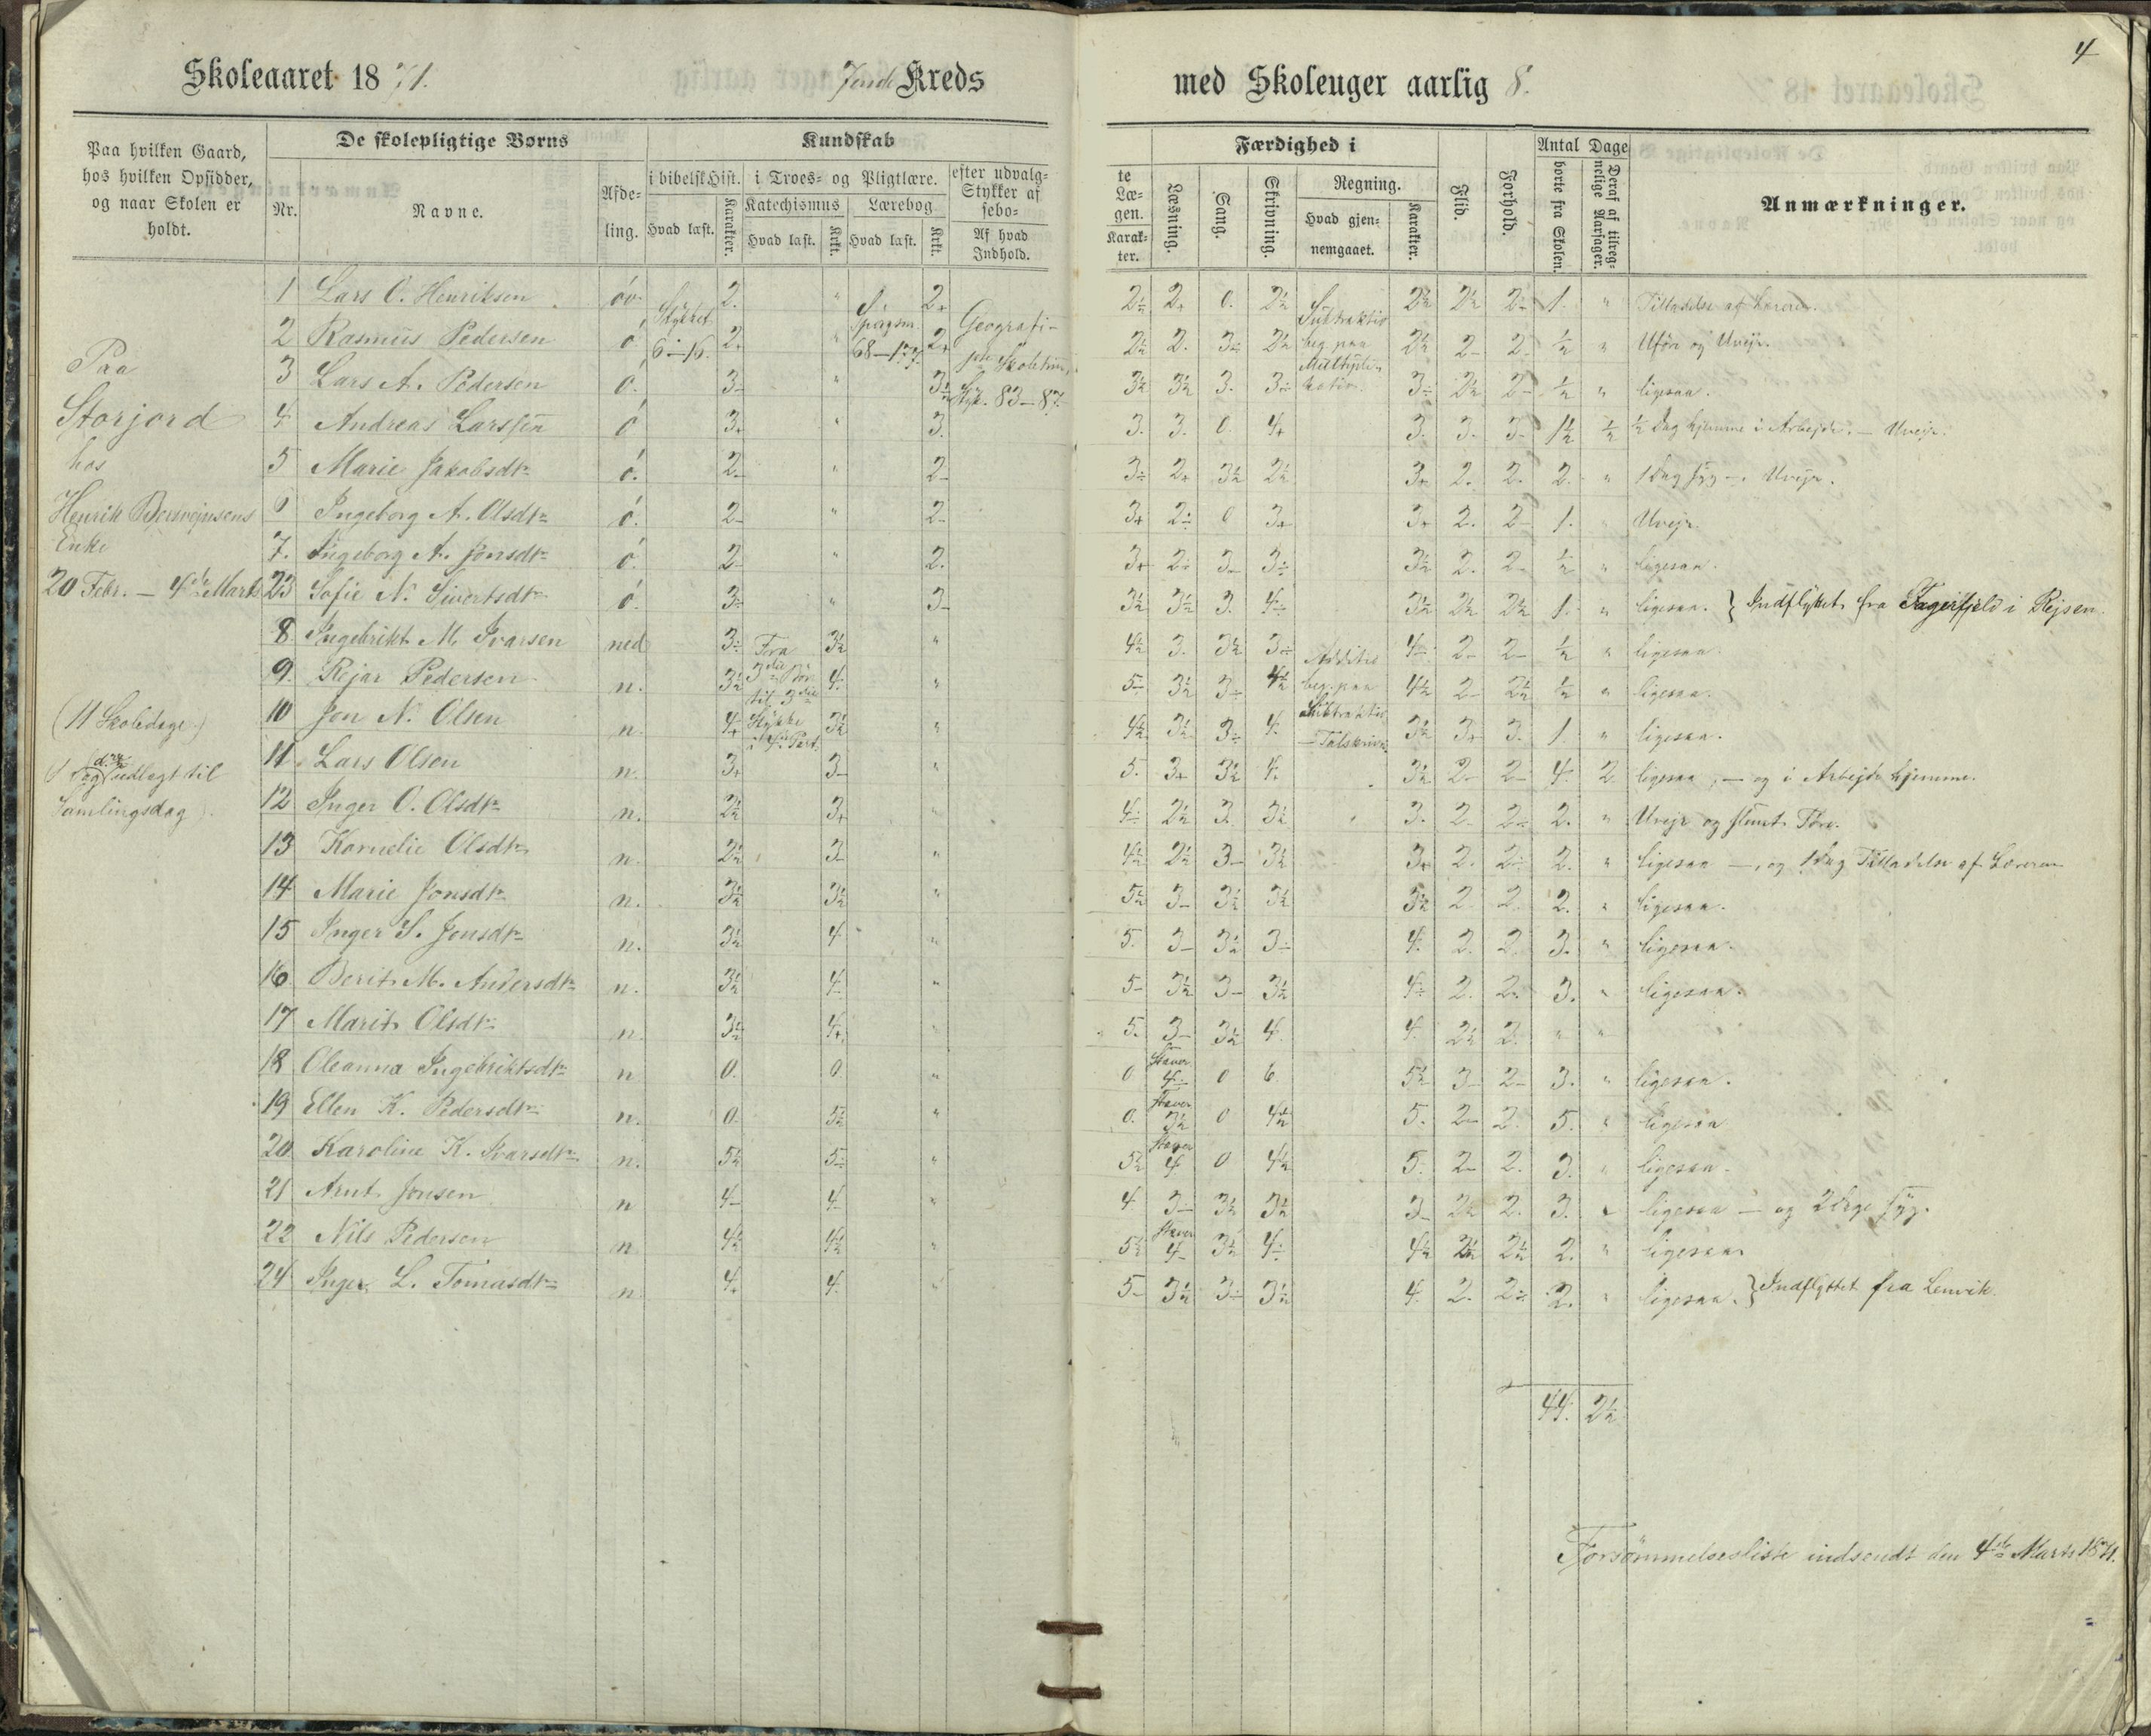 4
Skoleaaret 1871. Kreds med Skoleuger aarlig 8.
Paa hvilken Gaard, hos hvilken Opsidder, og naar Skolen er holdt.
De skolepligtige Børns
Nr. Navne. Afdeling.
Kundskab
i bibelsk Hist. Hvad læst. Karakter.
i Troes- og Pligtlære.
Katechismus Hvad læst. Krkt.
Lærebog Hvad læst. Krkt.
efter udvalgte Stykker af Læsebogen.
Af hvad Indhold. Karakter.
Færdighed i
Læsning. Sang. Skrivning.
Regning. Hvad gjennemgaaet. Karakter.
Flid. Forhold.
Antal Dage
borte fra Skolen. Deraf af tilregnelige Aarsager.
Anmærkninger.
Paa
Storjord
hos
Henrik
Enke
20 Febr. — 4de Marts
(11 Skoledage)
udlagt til
Samlingsdag).
Stykket
6–16.
Spørgsm.
68–
Geografi
Styk. 83–87.
Subtraktio
beg. paa
Multipli-
katio.
Fra
til 3die
Stykke
Additio
beg. paa
Subtraktio
—Talskrivn.
1 Lars O. Henriksen öv. 2. " 2+ 2÷ 2+ 0. 2½ 2½ 2½ 2- 1. " Tilladelse af Læreren.
2 Rasmus Pedersen ö 2+ " 2+ 2½ 2. 3÷ 2½ 2½ 2- 2. ½ " Uföre og Uvejr.
3 Lars A. Pedersen ö. 3- " 3½ 3½ 3½ 3. 3÷ 3÷ 2½ 2- ½ " ligesaa.
4 Andreas Larssen ö 3+ " 3. 3. 3. 0. 4+ 3. 3. 3- 1½ ½ ½ Dag hjemme i Arbejde. — Uvejr.
5 Marie Jakobsdtr ö. 2- " 2- 3÷ 2+ 3½ 2½ 3+ 2. 2. 2. " 1 Dag syg — Uvejr.
6 Ingeborg A. Olsdtr ö. 2- " 2- 3+ 2÷ 0 3+ 3+ 2. 2- 1. " Uvejr.
7. Ingeborg A. Jonsdtr ö. 2- " 2. 3+ 2- 3- 3÷ 3½ 2. 2- ½ " ligesaa.
23 Sofie N. Sivertsdtr ö. 3- " 3- 3½ 3½ 3. 4÷ 3½ 2½ 2½ 1. " ligesaa. } Indflyttet fra i Rejsen.
8. Ingebrikt M. Ivarsen ned 3÷ 3½ " 4½ 3. 3½ 3÷ 4÷ 2- 2- ½ " ligesaa.
9. Rejar Pedersen n. 3½ 4. " 5- 3½ 3÷ 4½ 4½ 2- 2½ ½ " ligesaa.
10 Jon N. Olsen n. 4+ 3½ " 4½ 3½ 3÷ 4. 3½ 3+ 3. 1. " ligesaa.
11. Lars Olsen n. 3+ 3- " 5. 3+ 3½ 4. 3½ 2- 2- 4. 2 ligesaa, — og i Arbejde hjemme.
12 Inger O. Olsdtr n. 2½ 3+ " 4÷ 2½ 3. 3½ 3. 2- 2÷ 2. " Uvejr og slemt Före.
13 Kornelie Olsdtr n. 2½ 3- " 4½ 2½ 3- 3½ 3+ 2. 2÷ 2. " ligesaa —, og 1 Dag Tilladelse af Læreren
14 Marie Jonsdtr n. 3½ 3½ " 5½ 3- 3½ 3½ 3½ 2. 2. 2. " ligesaa.
15 Inger S. Jonsdtr n. 3½ 4 " 5. 3- 3½ 3÷ 4. 2. 2. 3. " ligesaa.
16. Berit M. Andersdtr n. 3½ 4. " 5- 3½ 3- 3½ 4÷ 2. 2. 3. " ligesaa.
17 Marit Olsdtr n. 3½ 4+ " 5. 3- 3½ 4. 4. 2½ 2. " "
18 Oleanna Ingebriktsdtr n 0. 0. " 0 Staver 4÷ 0 6. 5½ 3- 2- 3. " ligesaa.
19 Ellen K. Pedersdtr n. 0. 5½ " 0. Staver 3½ 0 4½ 5. 2- 2. 5. " ligesaa
20 Karoline K. Ivarsdtr n. 5½ 5÷ " 5½ Staver 4 0 4½ 5. 2- 2. 3. " ligesaa.
21 Arnt Jonsen n 4- 4- " 4 3- 3½ 3½ 3- 2½ 2. 3. " ligesaa — og 2 Dage syg.
22 Nils Pedersen n 4½ 4½ " 5½ Staver 4- 3½ 4÷ 4½ 2½ 2½ 2. " ligesaa
24 Inger L. Tomasdtr n. 4+ 4. " 5- 3½ 3÷ 3½ 4. 2. 2÷ 2. " ligesaa. } Indflyttet fra Lenvik.
44. 2½
Forsömmelsesliste indsendt den 4de Marts 1871.